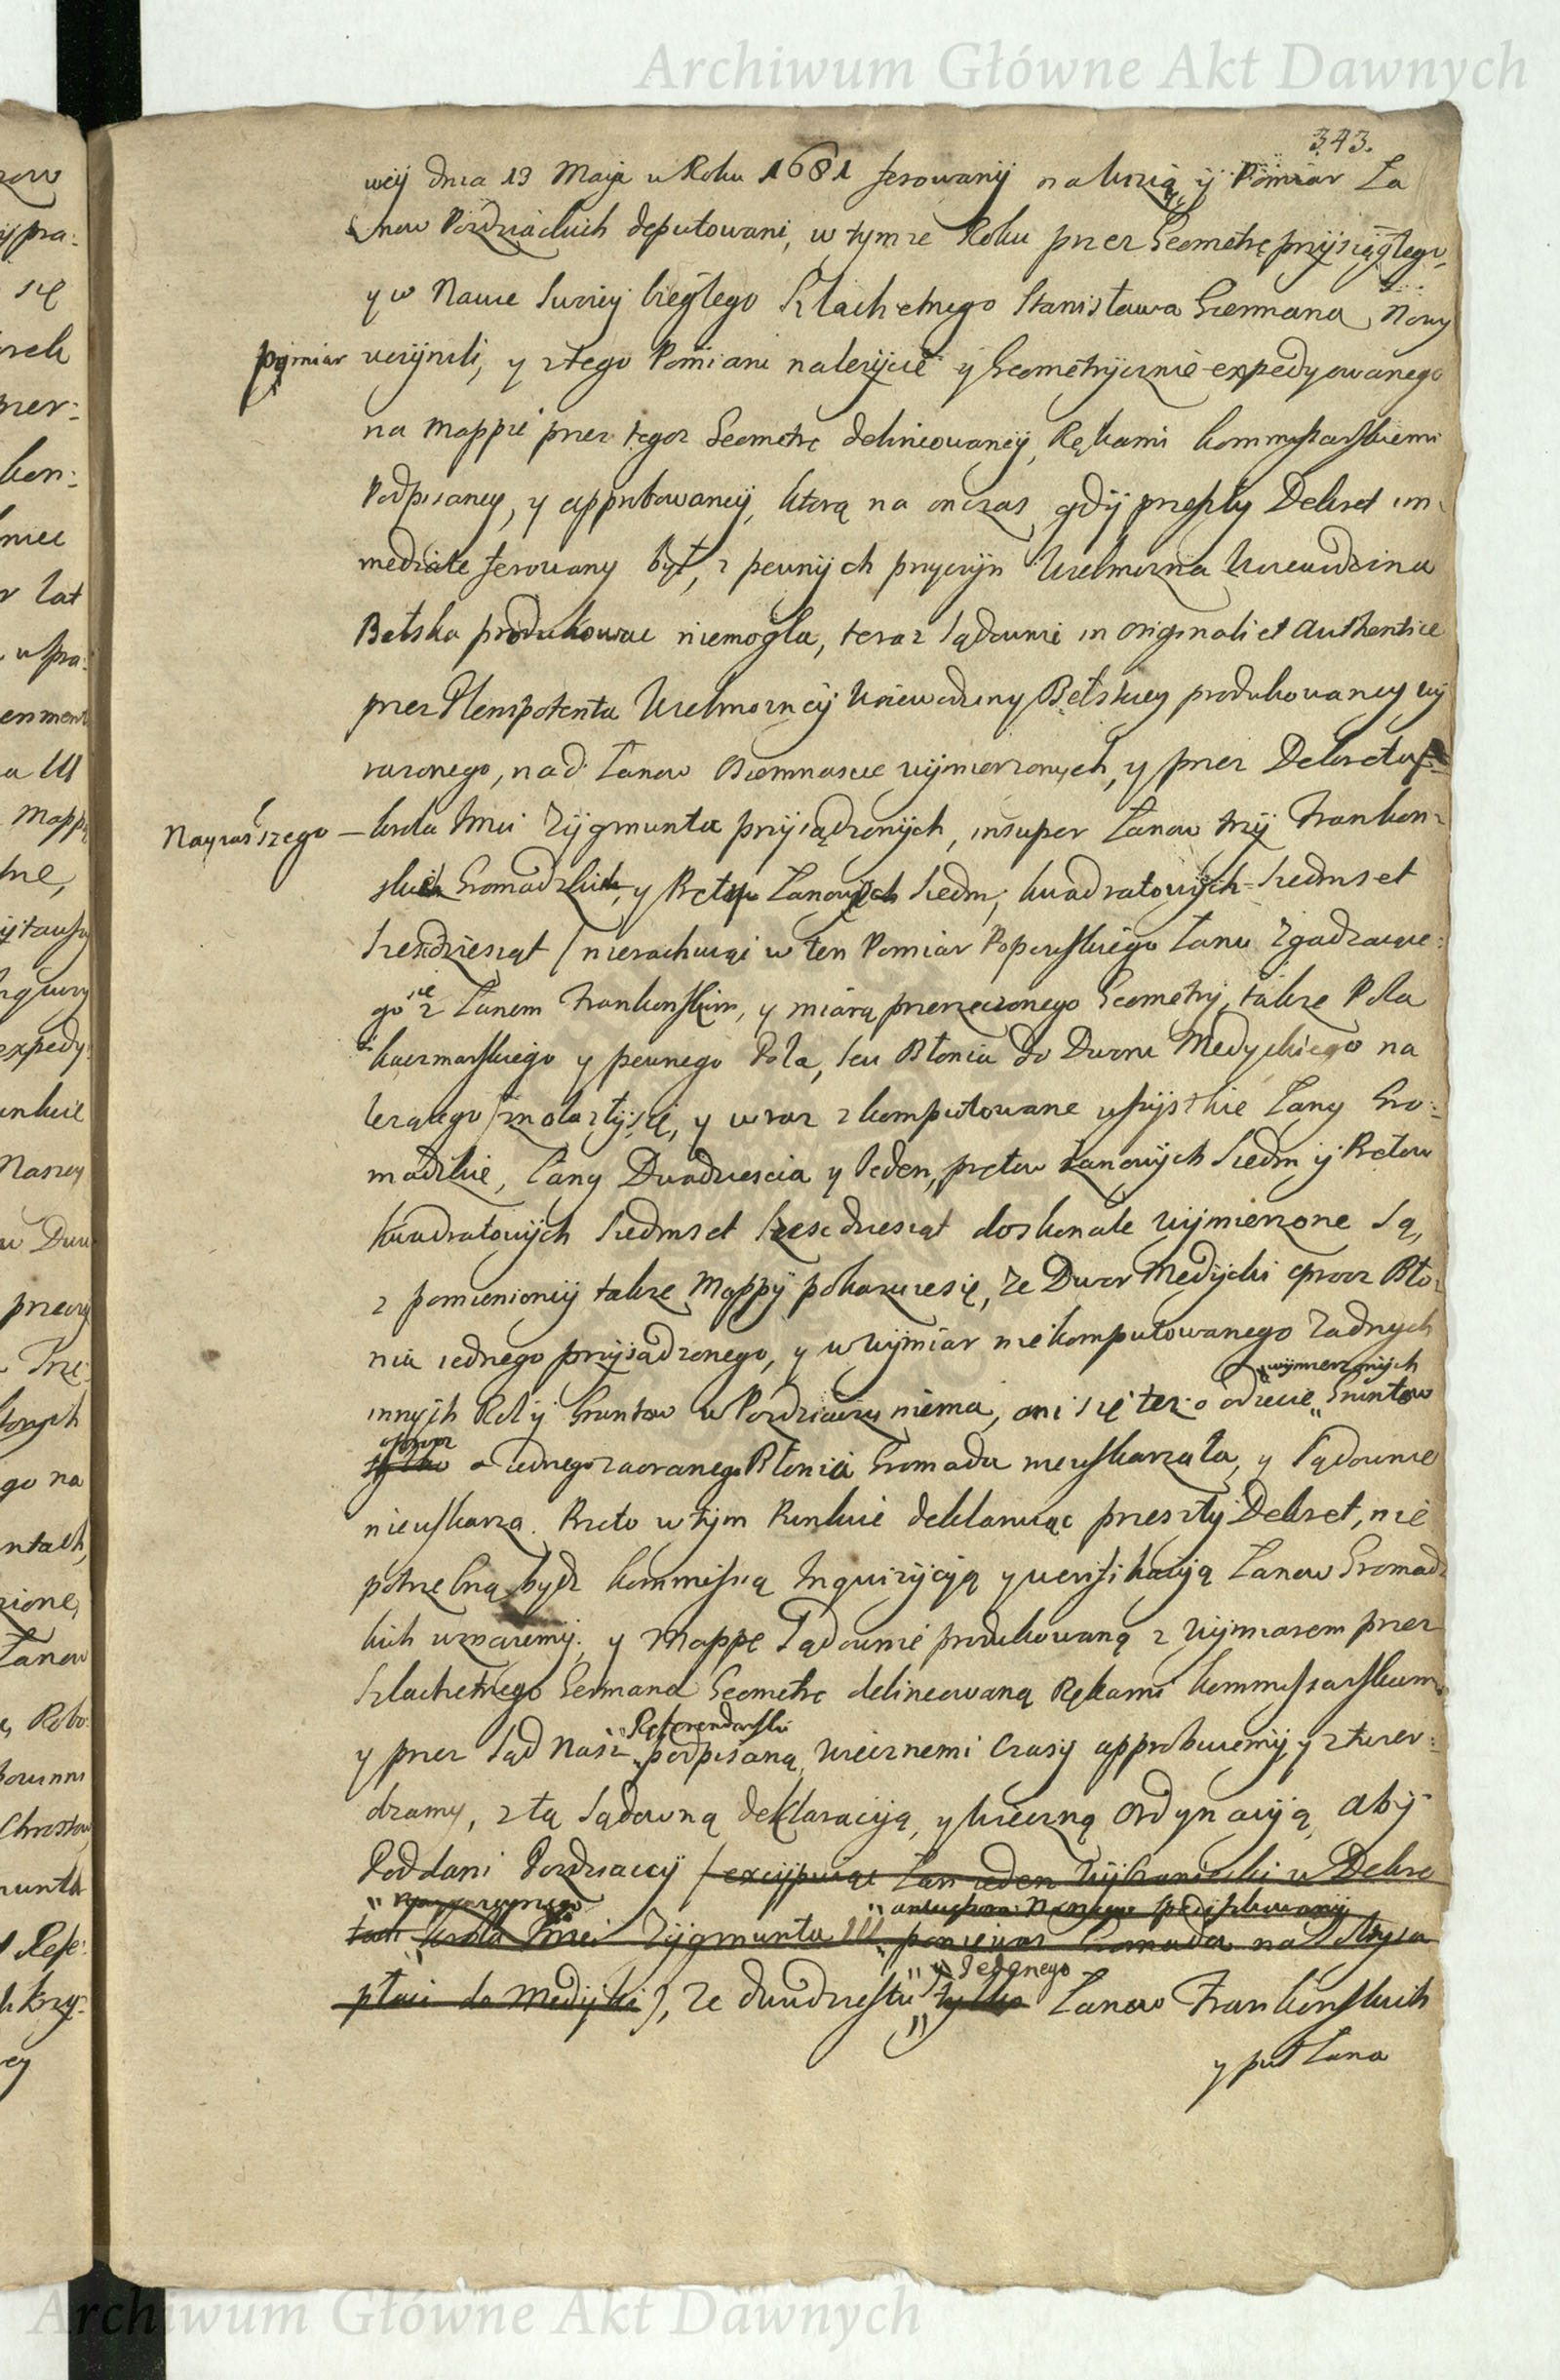 Archiwum Główne Akt Dawnych
343.
wey dnia 13 Maja w Roku 1681 ferowanÿ na ÿ Pomiar Ła
now Pozdziackich deputowani, w tymze Roku przez Geometrę przÿsięgłego,
y w Nauce biegłego Szlachetnego Stanisława Germana Nowy
pomiar uczÿnili, y z tego Pomiaru nalezÿcie y Geometrÿcznie expedyowanego
na Mappie przez tegoz Geometrę delineowaneÿ, Rękami kommissarskiemi
Podpisaney, y approbowaneÿ, ktorą na onczas gdÿ przeszły Dekret im
mediate ferowany był, z pewnÿch przyczÿn Wielmozna Woiewodzina
Bełska produkowac niemogła, teraz Sądownie in originali et Authentice
przez Plenipotenta Wielmozneÿ Woiewodziny Bełskiey produkowaney wÿ
razonego, nad Łanow Osiemnascie wÿmierzonych, y przez Dekreta
Nayiasszego — krola Imci Zÿgmunta przÿsądzonÿch, insuper Łanow trzÿ Frankon
skich Gromadzkich, y Prętow Łanowych Siedm, kwadratowÿch Siedmset
Szesdziesiąt / nierachuiąc w ten Pomiar Popowskiego Łanu Zgadzaiące
go się z Łanem Frankonskim, y miarą przerzeczonego Geometrÿ, takze Pola
karczmarskiego y pewnego Pola, seu Błonia do Dworu Medyckiego na
lezącego / znalazłÿ się, y wraz zkomputowane wszÿstkie Łany Gro
madzkie, Łany Dwadziescia y Ieden, prętow Łanowÿch Siedm ÿ Prętow
kwadratowÿch Siedmset Szescdziesiąt doskonale wÿmierzone są,
z pomienioneÿ takze Mappÿ pokazuie się, ze Dwor Medÿcki oprocz Bło
nia iednego przÿsądzonego, y w wÿmiar niekomputowanego zadnych
"wymierzonÿch
innÿch Rol ÿ Gruntow w Pozdziaczu niema, ani się tez o odięcie "Gruntow
oprocz
tÿlko o iednego zaoranego Błonia Gromada nieuskarzała, y Sądownie
nieuskarza. Przeto w tÿm Punkcie deklaruiąc przeszłÿ Dekret, nie
potrzebną bydz kommissią Inquizÿcÿą y werifikacÿą Łanow Gromadz
kich uznaiemÿ, y Mappę Sądownie produkowaną z wÿmiarem przez
Szlachetnego Germana Geometrę delineowaną Rękami kommissarskiemi
Referendarski
y przez Sąd Nasz "podpisaną, wiecznemi czasÿ approbuiemÿ, y ztwier
dzamy, z tą Sądowną deklaracÿą, y wieczną ordynacÿą, abÿ
Poddani Pozdziaccÿ (excÿpuiąc Łan ieden Wÿbraniecki w Dekre
tach krola Imci Zÿgmunta III poniewaz Gromada na
"y Iednego
płaci do Medÿki), ze dwudziestu "tÿlko Łanow Frankonskich
y puł Łana
Archiwum Główne Akt Dawnych